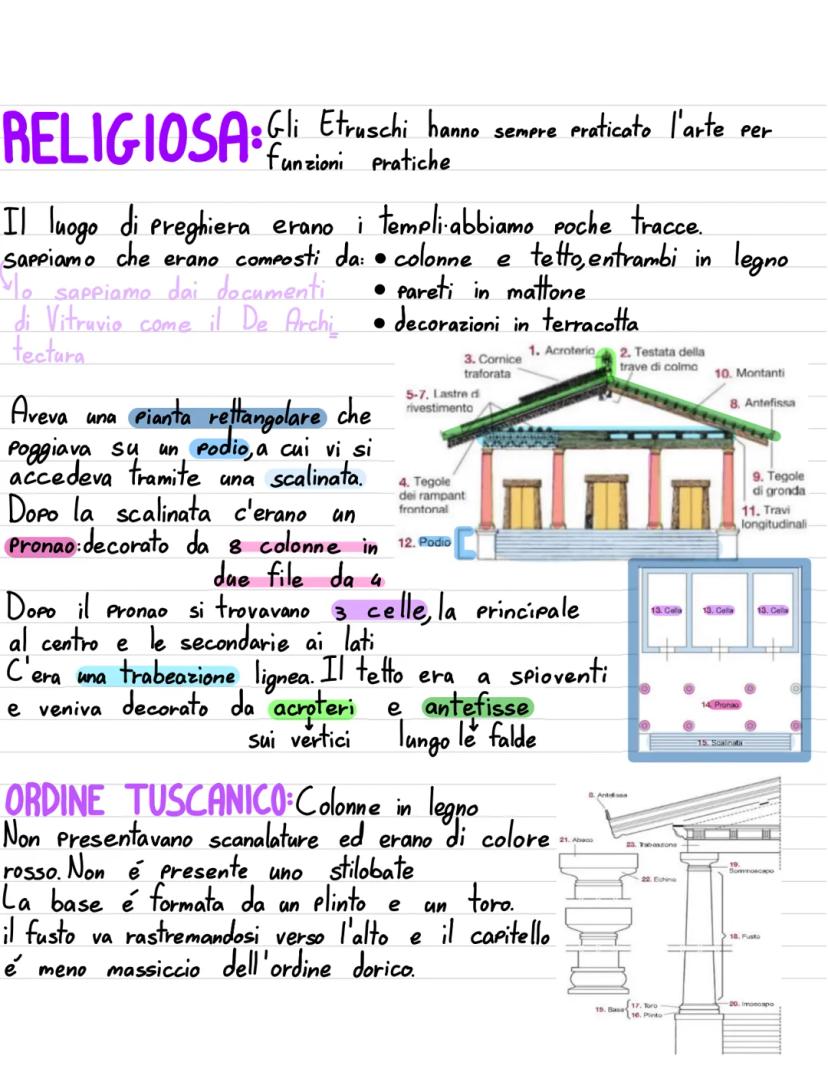 RELIGIOSA: Gli Etruschi hanno sempre praticato l'arte per
funzioni pratiche
Il luogo di preghiera erano i templi. abbiamo poche tracce.
sappiamo che erano composti da: • colonne e tetto, entrambi in legno
lo sappiamo dai documenti • pareti in mattone
di Vitruvio come il De Archi_ • decorazioni in terracotta
tectura
1. Acroterio
2. Testata della
trave di colmo
3. Cornice
traforata
10. Montanti
5-7. Lastre di
rivestimento
8. Antefissa
4. Tegole
dei rampant
frontonal
9. Tegole
di gronda
11. Travi
longitudinali
12. Podio
Aveva una pianta rettangolare che
poggiava su un podio, a cui vi si
accedeva tramite una scalinata.
Dopo la scalinata c'erano un
Pronao: decorato da 8 colonne in
due file da 4
Dopo il pronao si trovavano 3 celle, la principale
al centro e le secondarie ai lati
C'era una trabeazione lignea. Il tetto era a spioventi
e veniva decorato da acroteri e antefisse
sui vertici lungo le falde
13. Cella 13. Cella 13. Cella
14. Pronao
15. Scalinata
ORDINE TUSCANICO: Colonne in legno
Non presentavano scanalature ed erano di colore
rosso. Non é presente uno stilobate
La base é formata da un plinto e un toro.
il fusto va rastremandosi verso l'alto e il capitello
é meno massiccio dell'ordine dorico.
8. Antefissa
21. Abaco
23. Trabeazione
22. Echino
19.
Sommoscapo
18. Fusto
15. Base
17. Toro
16. Plinto
20. Imoscapo